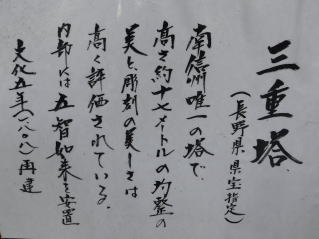 三重塔
(長野県・県宝指定)
南信州唯一の塔で、
高さ約十七メートルの均整の
美と、彫刻の美しさは
高く評価されている。
内部には五智如来を安置
文化五年(一八〇八)再建